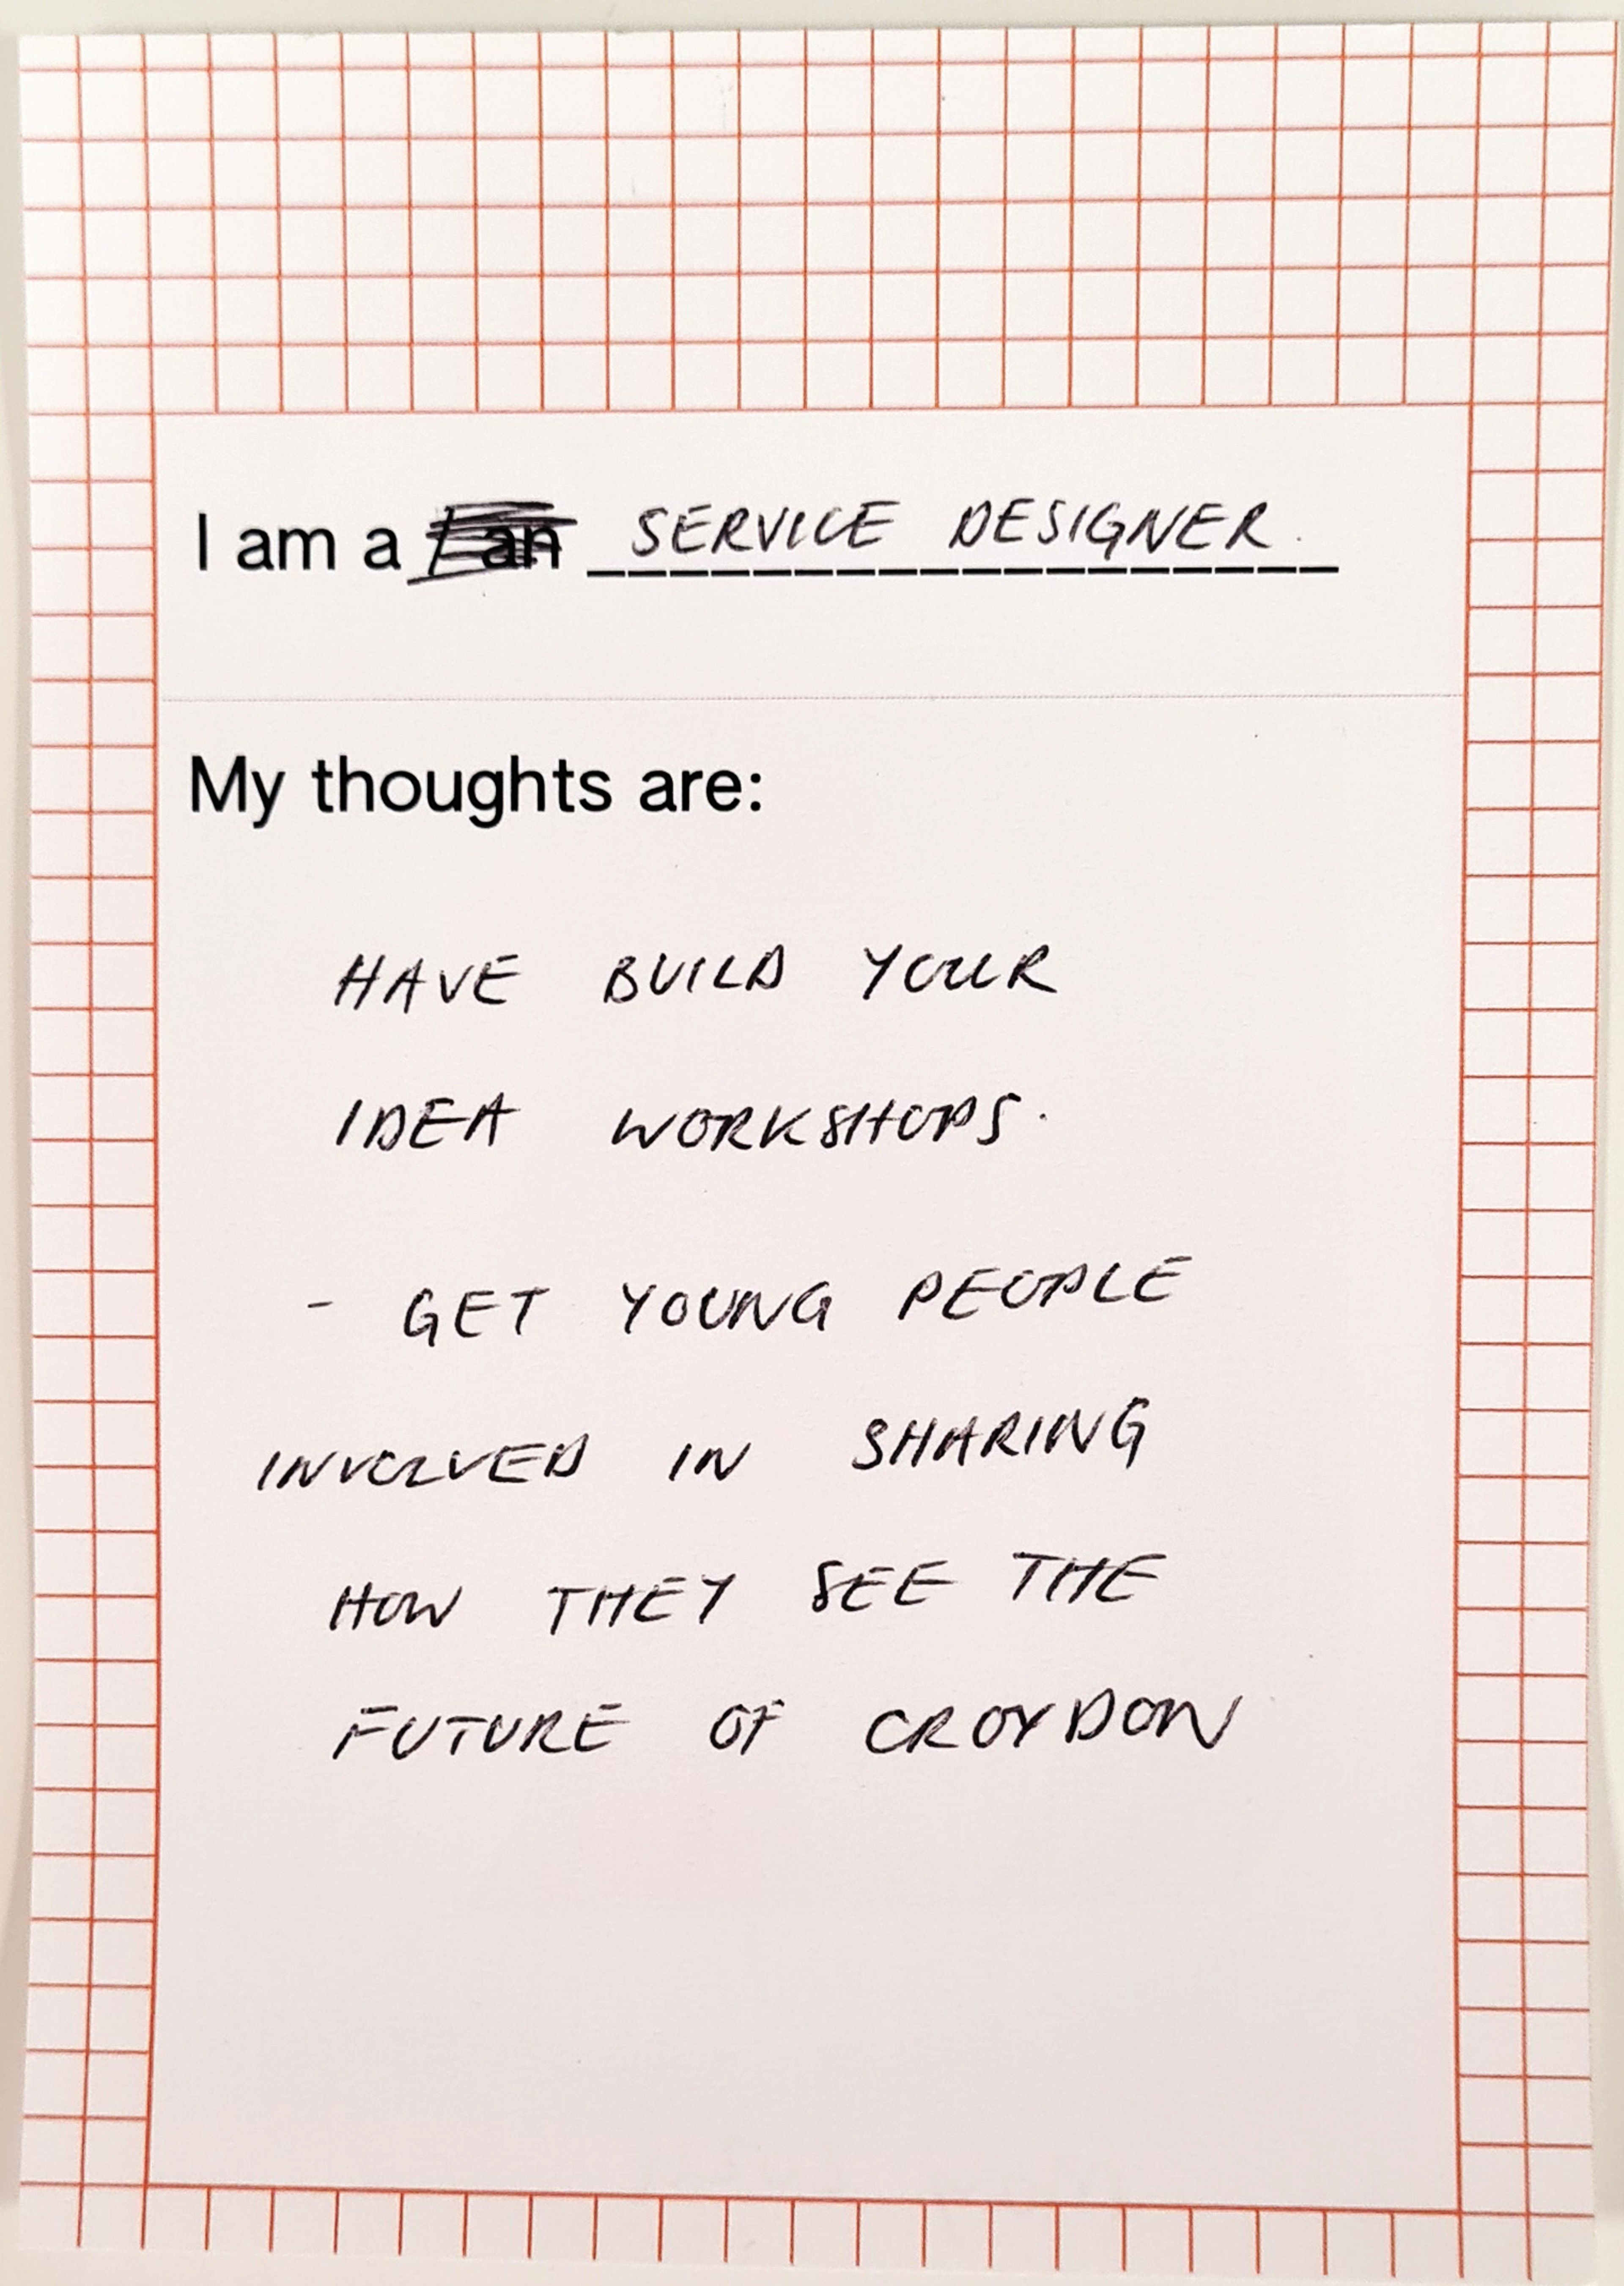 I am a / an SERVICE DESIGNER.
My thoughts are:
HAVE BUILD YOUR
IDEA WORKSHOPS.
- GET YOUNG PEOPLE
INVOLVED IN SHARING
HOW THEY SEE THE
FUTURE OF CROYDON